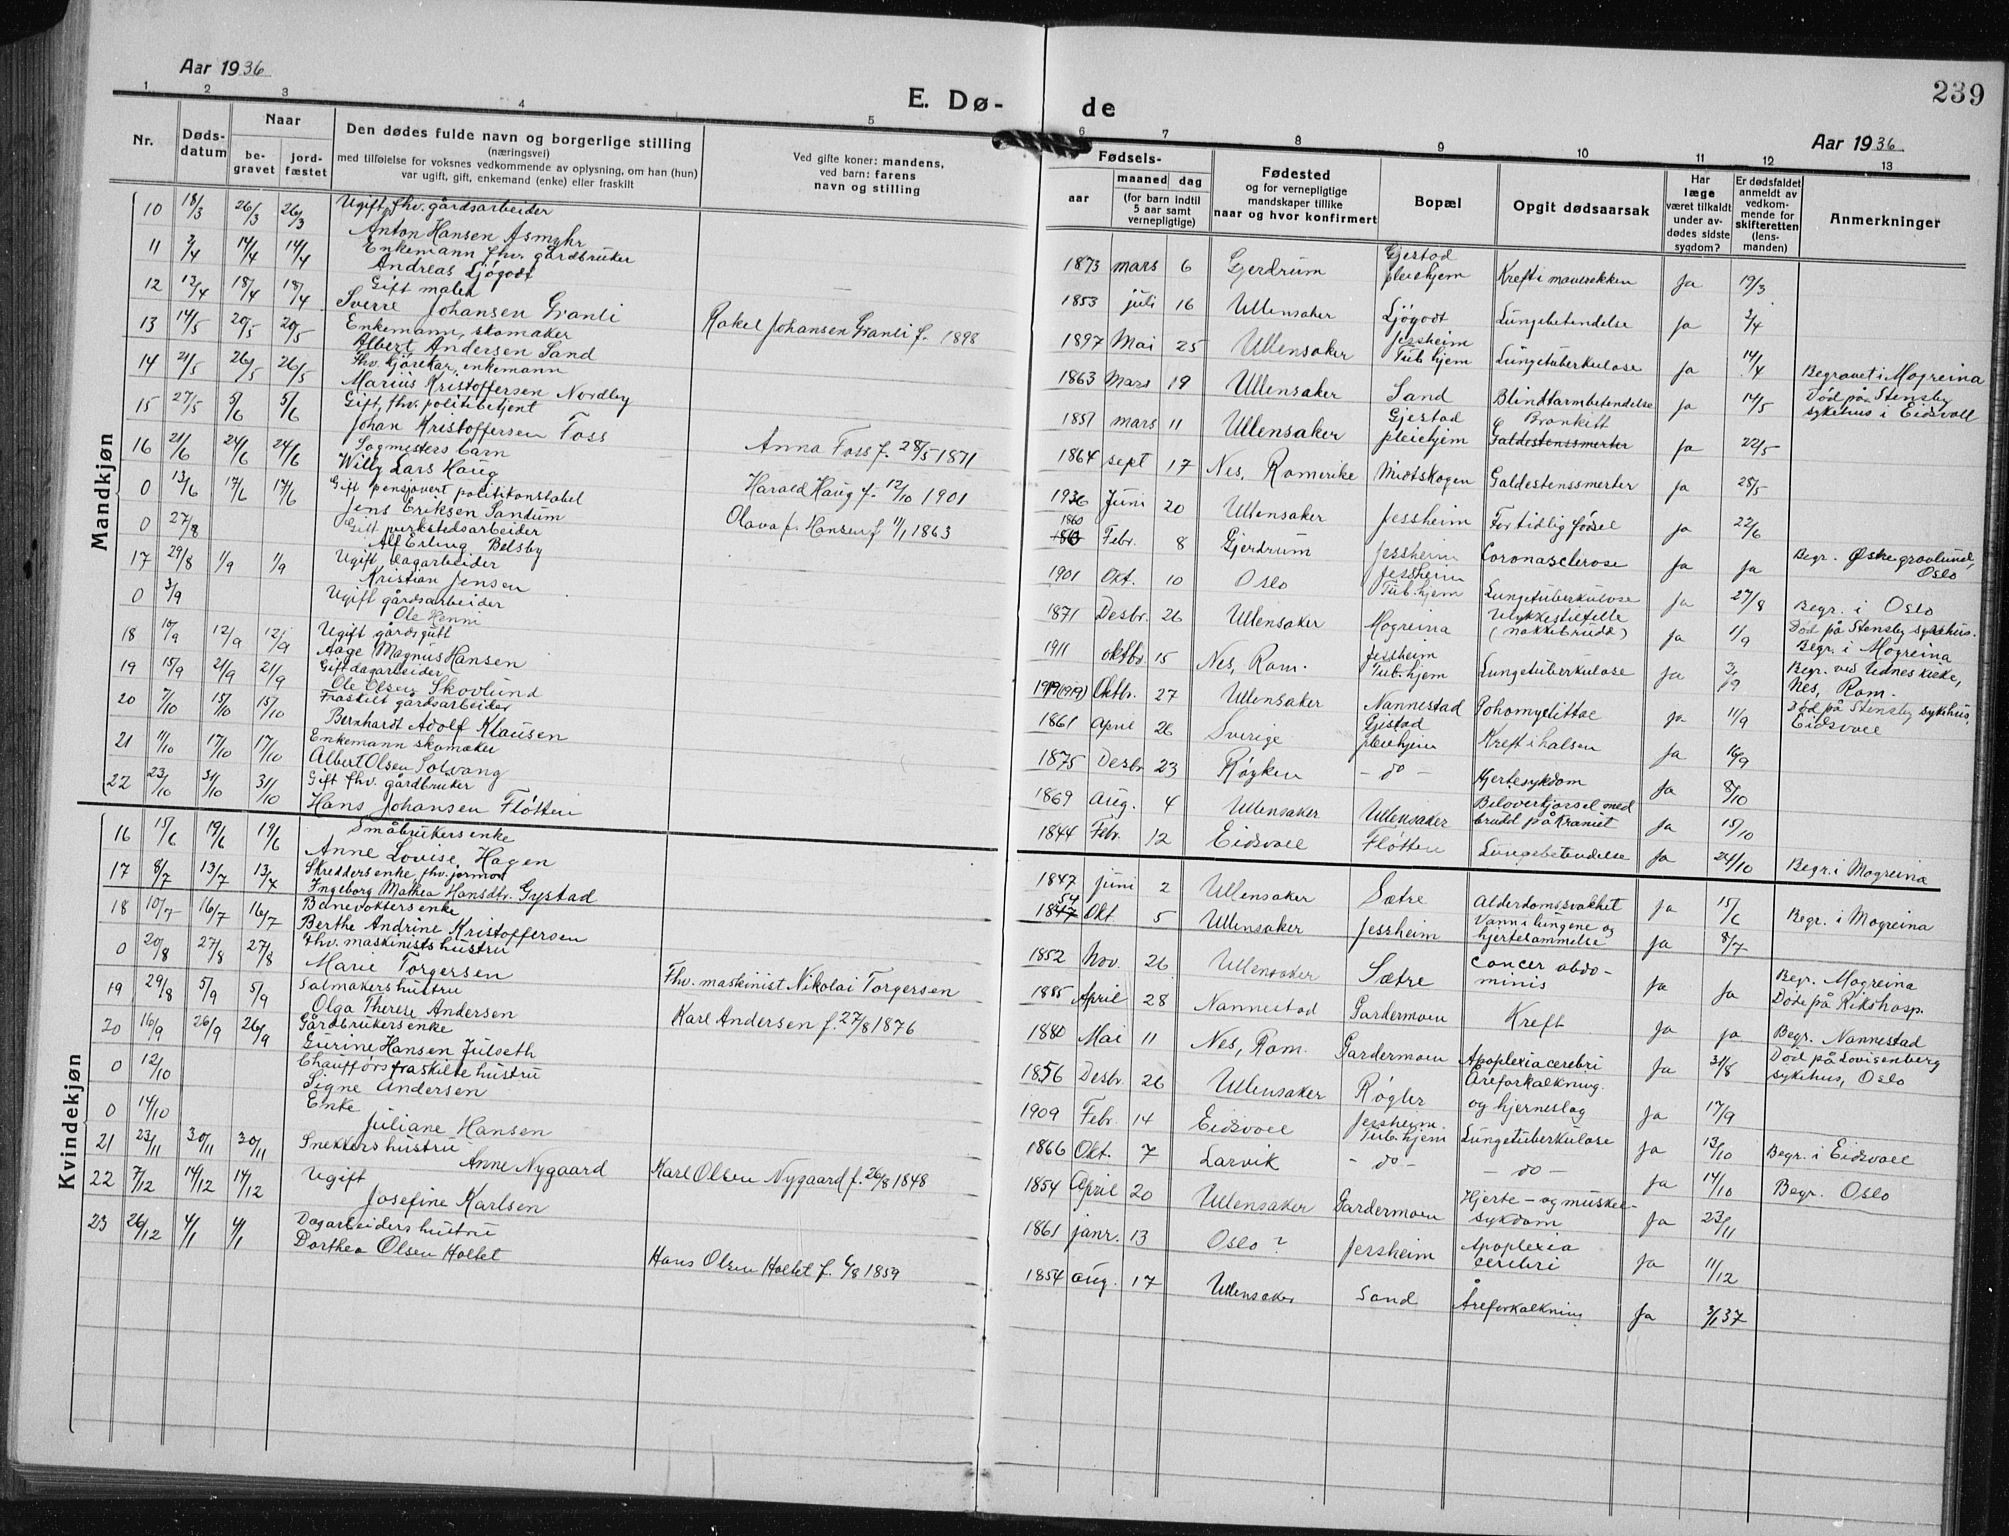 Aar 1936
E. Dø-
de
239
Aar 1936
1 2 3 4 5 6 7 8 9 10 11 12 13
Nr.
Døds-
datum
Naar
be-
gravet
jord-
fæstet
Den dødes fulde navn og borgerlige stilling
(næringsvei)
med tilføielse for voksnes vedkommende av oplysning, om han (hun)
var ugift, gift, enkemand (enke) eller fraskilt
Ved gifte koner: mandens,
ved barn: farens
navn og stilling
Fødsels-
aar
maaned dag
(for barn indtil
5 aar samt
vernepligtige)
Fødested
og for vernepligtige
mandskaper tillike
naar og hvor konfirmert
Bopæl
Opgit dødsaarsak
Har
læge
været tilkaldt
under av-
dødes sidste
sygdom?
Er dødsfaldet
anmeldt av
vedkom-
mende for
skifteretten
(lens-
manden)
Anmerkninger
Mandkjøn
10 18/3 26/3 26/3 Ugift, fhv. gårdsarbeider
Anton Hansen Asmyhr
1873 mars 6 Gjerdrum Gjestad pleiehjem Kreft i mavesekken Ja 17/3
11 3/4 14/4 14/4 Enkemann fhv. gårdbruker
Andreas Ljøgodt
1853 juli 16 Ullensaker Ljøgodt Lungebetendelse Ja 3/4
12 12/4 18/4 18/4 Gift maler
Sverre Johansen Granli Rakel Johansen Granli f. 1898
1897 Mai 25 Ullensaker Jessheim Tub. hjem Lungetuberkulose Ja 14/4 Begravet i Mogreina
13 14/5 20/5 20/5 Enkemann, skomaker
Albert Andersen Sand
1863 Mars 19 Ullensaker Sand Blindtarmbetendelse Ja 14/5 Død på Stensby sykehus i Eidsvoll
14 21/5 26/5 26/5 Fhv. kjørekar, enkemann
Marius Kristoffersen Nordby
1851 mars 11 Ullensaker Gjestad pleiehjem Bronkitt Galdestenssmerter Ja 22/5
15 27/5 5/6 5/6 Gift, fhv. politibetjent
Johan Kristoffersen Foss Anna Foss f. 28/5 1871
1864 sept 17 Nes, Romerike Midtskogen Galdestenssmerter Ja 28/5
16 21/6 24/6 24/6 Sogmesters barn
Willy Lars Haug Harald Haug f. 12/10 1901
1936 Juni 20 Ullensaker Jessheim For tidlig fødsel Ja 22/6
0 13/6 17/6 17/6 Gift pensjonert politikonstabel
Jens Eriksen Sandum Olava f. Hansen f 11/1 1863
1860 Febr. 8 Gjerdrum Jessheim Coronasclerose Ja Ja Begr. Østre gravlund, Oslo
0 27/8 Gift verkstedsarbeider
Alf Erling Belsby
1901 Okt. 10 Oslo Jessheim Tub. hjem Lungetuberkulose Ja 27/8 Begr. i Oslo
17 29/8 1/9 1/9 Ugift dagarbeider
Kristian Jensen
1871 Desbr. 26 Ullensaker Mogreina Ulykkestilfelle (nakkebrudd) Ja 1/9 Død på Stensby sykehus. Begr. i Mogreina
0 3/9 Ugift gårdsarbeider
Ole Henni
1911 oktbr. 15 Nes, Rom. Jessheim Tub. hjem Lungetuberkulose Ja 3/9 Begr. ved Udnes kirke, Nes, Rom.
18 10/9 12/9 12/9 Ugift gårdsgutt
Aage Magnus Hansen
1919 (1919) Oktbr. 27 Ullensaker Nannestad Pohomyelittae Ja 11/9 Død på Stensby sykehus, Eidsvoll
19 15/9 21/9 21/9 Gift dagarbeider
Ole Olsen Skovlund
1861 April 26 Sverige Gjestad pleiehjem Kreft i halsen Ja 16/9
20 7/10 15/10 15/10 Fraskilt gårdsarbeider
Bernhardt Adolf Klausen
1875 Desbr 23 Røyken - do - Hjertesykdom Ja 8/10
21 11/10 17/10 17/10 Enkemann skomaker
Albert Olsen Solvang
1869 Aug. 4 Ullensaker Ullensaker Biloverkjørsel med brudd på kraniet Ja 15/10
22 23/10 31/10 31/10 Gift fhv. gårdbruker
Hans Johansen Fløtten
1844 Febr. 12 Eidsvoll Fløtten Lungebetendelse Ja 24/10 Begr. i Mogreina
Kvindekjøn
16 15/6 19/6 19/6 Småbrukers enke
Anne Lovise Hagen
1847 juni 2 Ullensaker Sætre Alderdomssvakhet Ja 15/6 Begr. i Mogreina
17 8/7 13/7 13/7 Skreddersenke, fhv. jormor
Ingeborg Mathea Hansdtr. Gystad
1854 Okt 5 Ullensaker Jessheim Vann i lungene og hjertelammelse Ja 8/7
18 10/7 16/7 16/7 Banevokters enke
Berthe Andrine Kristoffersen
1852 Nov. 26 Ullensaker Sætre Cancer abdominis Ja Ja Begr. Mogreina
0 20/8 27/8 27/8 Fhv. maskinists hustru
Marie Torgersen Fhv. maskinist Nikolai Torgersen
1885 April 28 Nannestad Gardermoen Kreft Ja Ja Døde på Rikshosp. Begr. Nannestad
19 29/8 5/9 5/9 Salmakers hustru
Olga Therese Andersen Karl Andersen f. 27/8 1876
1880 Mai 11 Nes, Rom. Gardermoen Apoplexia cerebri Ja 31/8 Død på Lovisenberg sykehus, Oslo
20 16/9 26/9 26/9 Gårdbrukers enke
Gurine Hansen Julseth
1856 Desbr. 26 Ullensaker Røgler Åreforkalkning. og hjerneslag Ja 17/9
0 12/10 Chaufførs fraskilte hustru
Signe Andersen
1909 Febr. 14 Eidsvoll Jessheim. Tub. hjem Lungetuberkulose Ja 13/10 Begr. i Eidsvoll
0 14/10 Enke
Juliane Hansen
1866 Okt. 7 Larvik - do - - do - Ja 14/10 Begr. Oslo
21 23/11 30/11 30/11 Snekkers hustru
Anne Nygaard Karl Olsen Nygaard f. 26/8 1848
1854 April 20 Ullensaker Gardermoen Hjerte- og muskel- sykdom Ja 23/11
22 7/12 14/12 14/12 Ugift
Josefine Karlsen
1861 janr. 13 Oslo ? Jessheim Apoplexia cerebri Ja 11/12
23 26/12 4/1 4/1 Dagarbeiders hustru
Dorthea Olsen Holtet Hans Olsen Holtet f. 6/8 1859
1854 aug. 17 Ullensaker Sand Åreforkalkning Ja 3/1 37